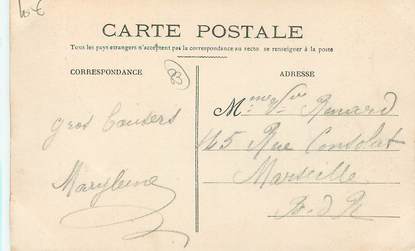 10€
CARTE POSTALE
Tous les pays étrangers n'acceptent pas la correspondance au recto se renseigner à la poste
CORRESPONDANCE
ADRESSE
gros baisers
Marylène
M me Renard
145 Rue Consolat
Marseille
B. d R